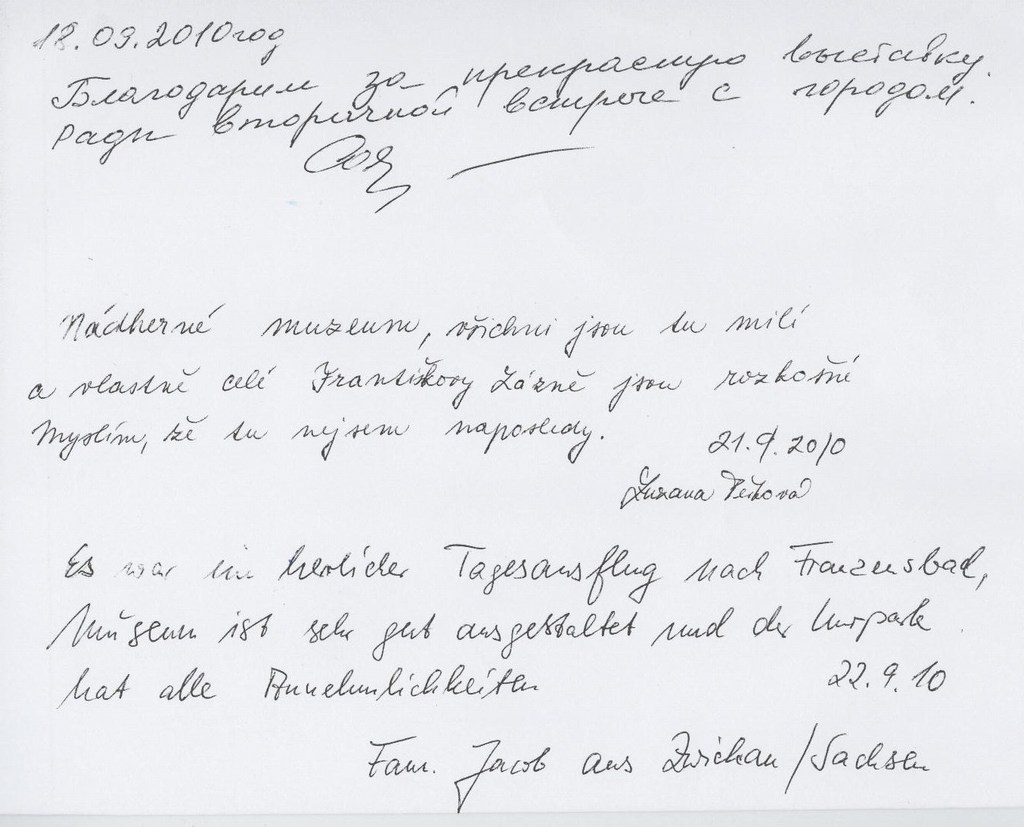 18.09.2010 год
Благодарим за прекрасную выставку.
Рады вторичной встрече с городом.
Nádherné muzeum, všichni jsou tu milí
a vlastně celé Františkovy Lázně jsou rozkošné
Myslím, že tu nejsem naposledy.
21.9.2010
Zuzana
Es war ein herrlicher Tagesausflug nach Franzensbad,
Museum ist sehr gut ausgestaltet und der Kurpark
hat alle Annehmlichkeiten
22.9.10
Fam. Jacob aus Zwickau/Sachsen